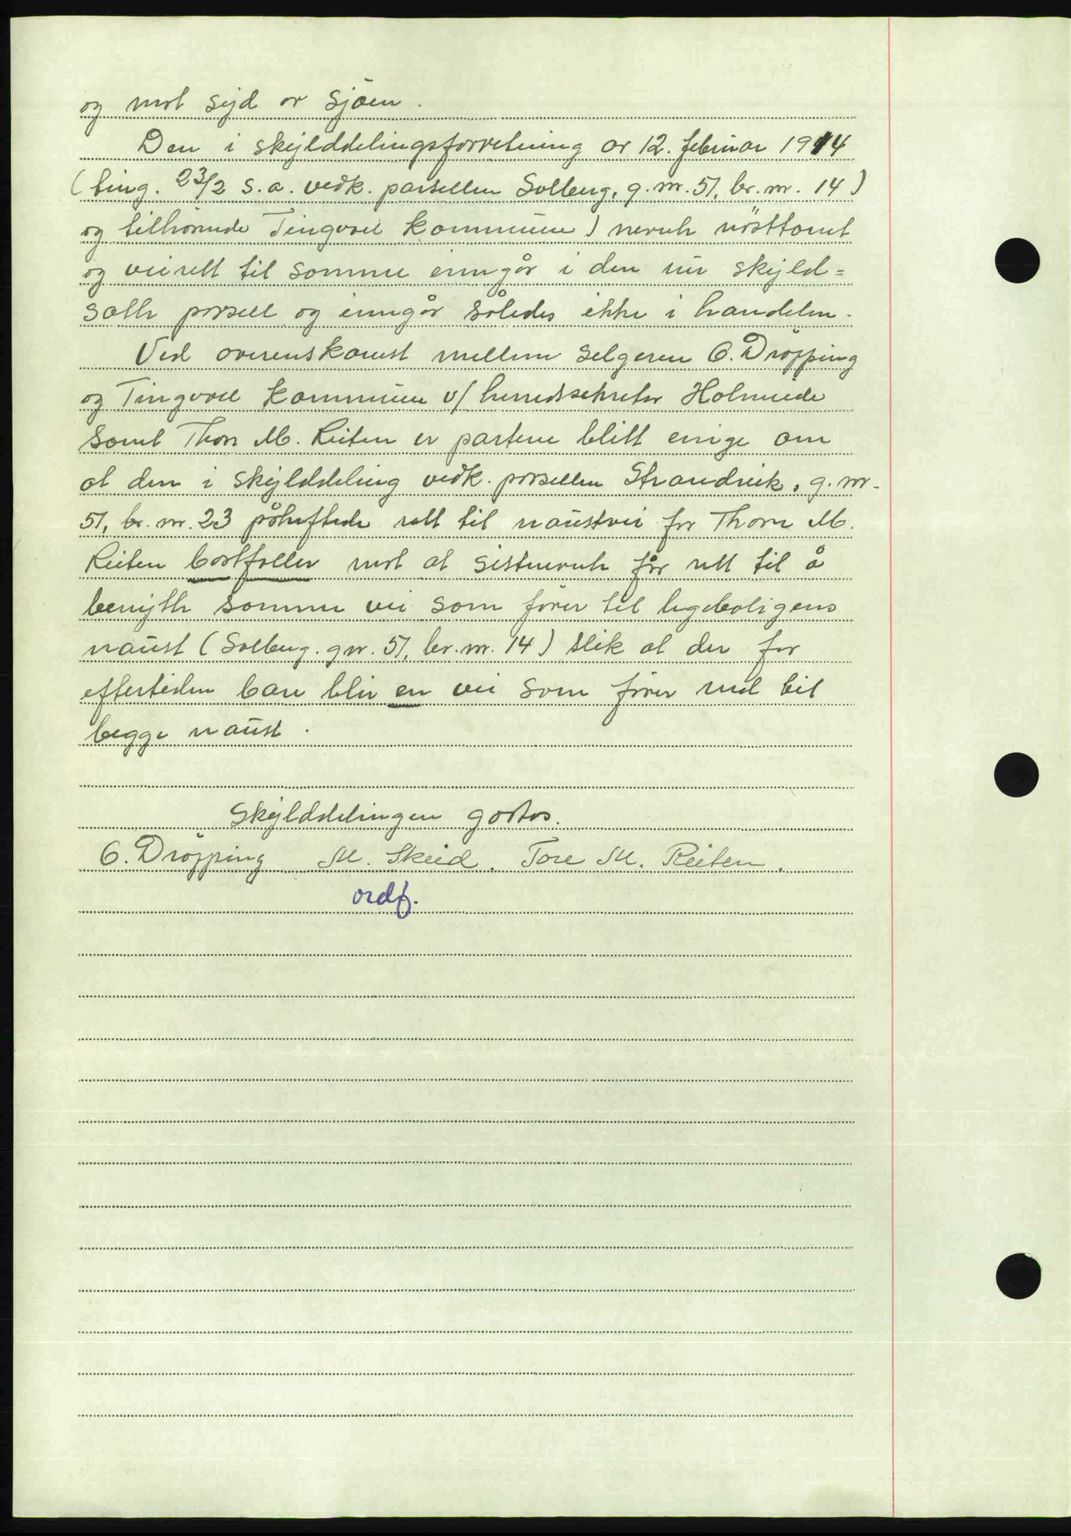 og mot syd av sjøen.
Den i skylddelingsforretning av 12. februar 1914
(ting. 23/2 s.a. vedk. parsellen Solberg, g.nr. 51, br.nr. 14)
og tilhørende Tingvoll kommune) nevnte nøsttomt
og veirett til samme inngår i den nu skyld-
satte parsell og inngår således ikke i handelen.
Ved overenskomst mellem selgeren O. Drøpping
og Tingvoll kommune v/ herredssekretær Holmeide
samt Thore M. Reiten er partene blitt enige om
at den i skylddeling vedk. parsellen Strandvik, g.nr.
51, br.nr. 23 påheftede rett til naustvei for Thore M.
Reiten bortfaller mot at sistnevnte får rett til å
benytte samme vei som fører til legeboligens
naust (Solberg. gnr. 51, br.nr. 14) slik at der for
eftertiden bare blir en vei som fører ned til
begge naust.
Skylddelingen godtas.
O. Drøpping M. Skeid. Tore M. Reiten.
ordf.